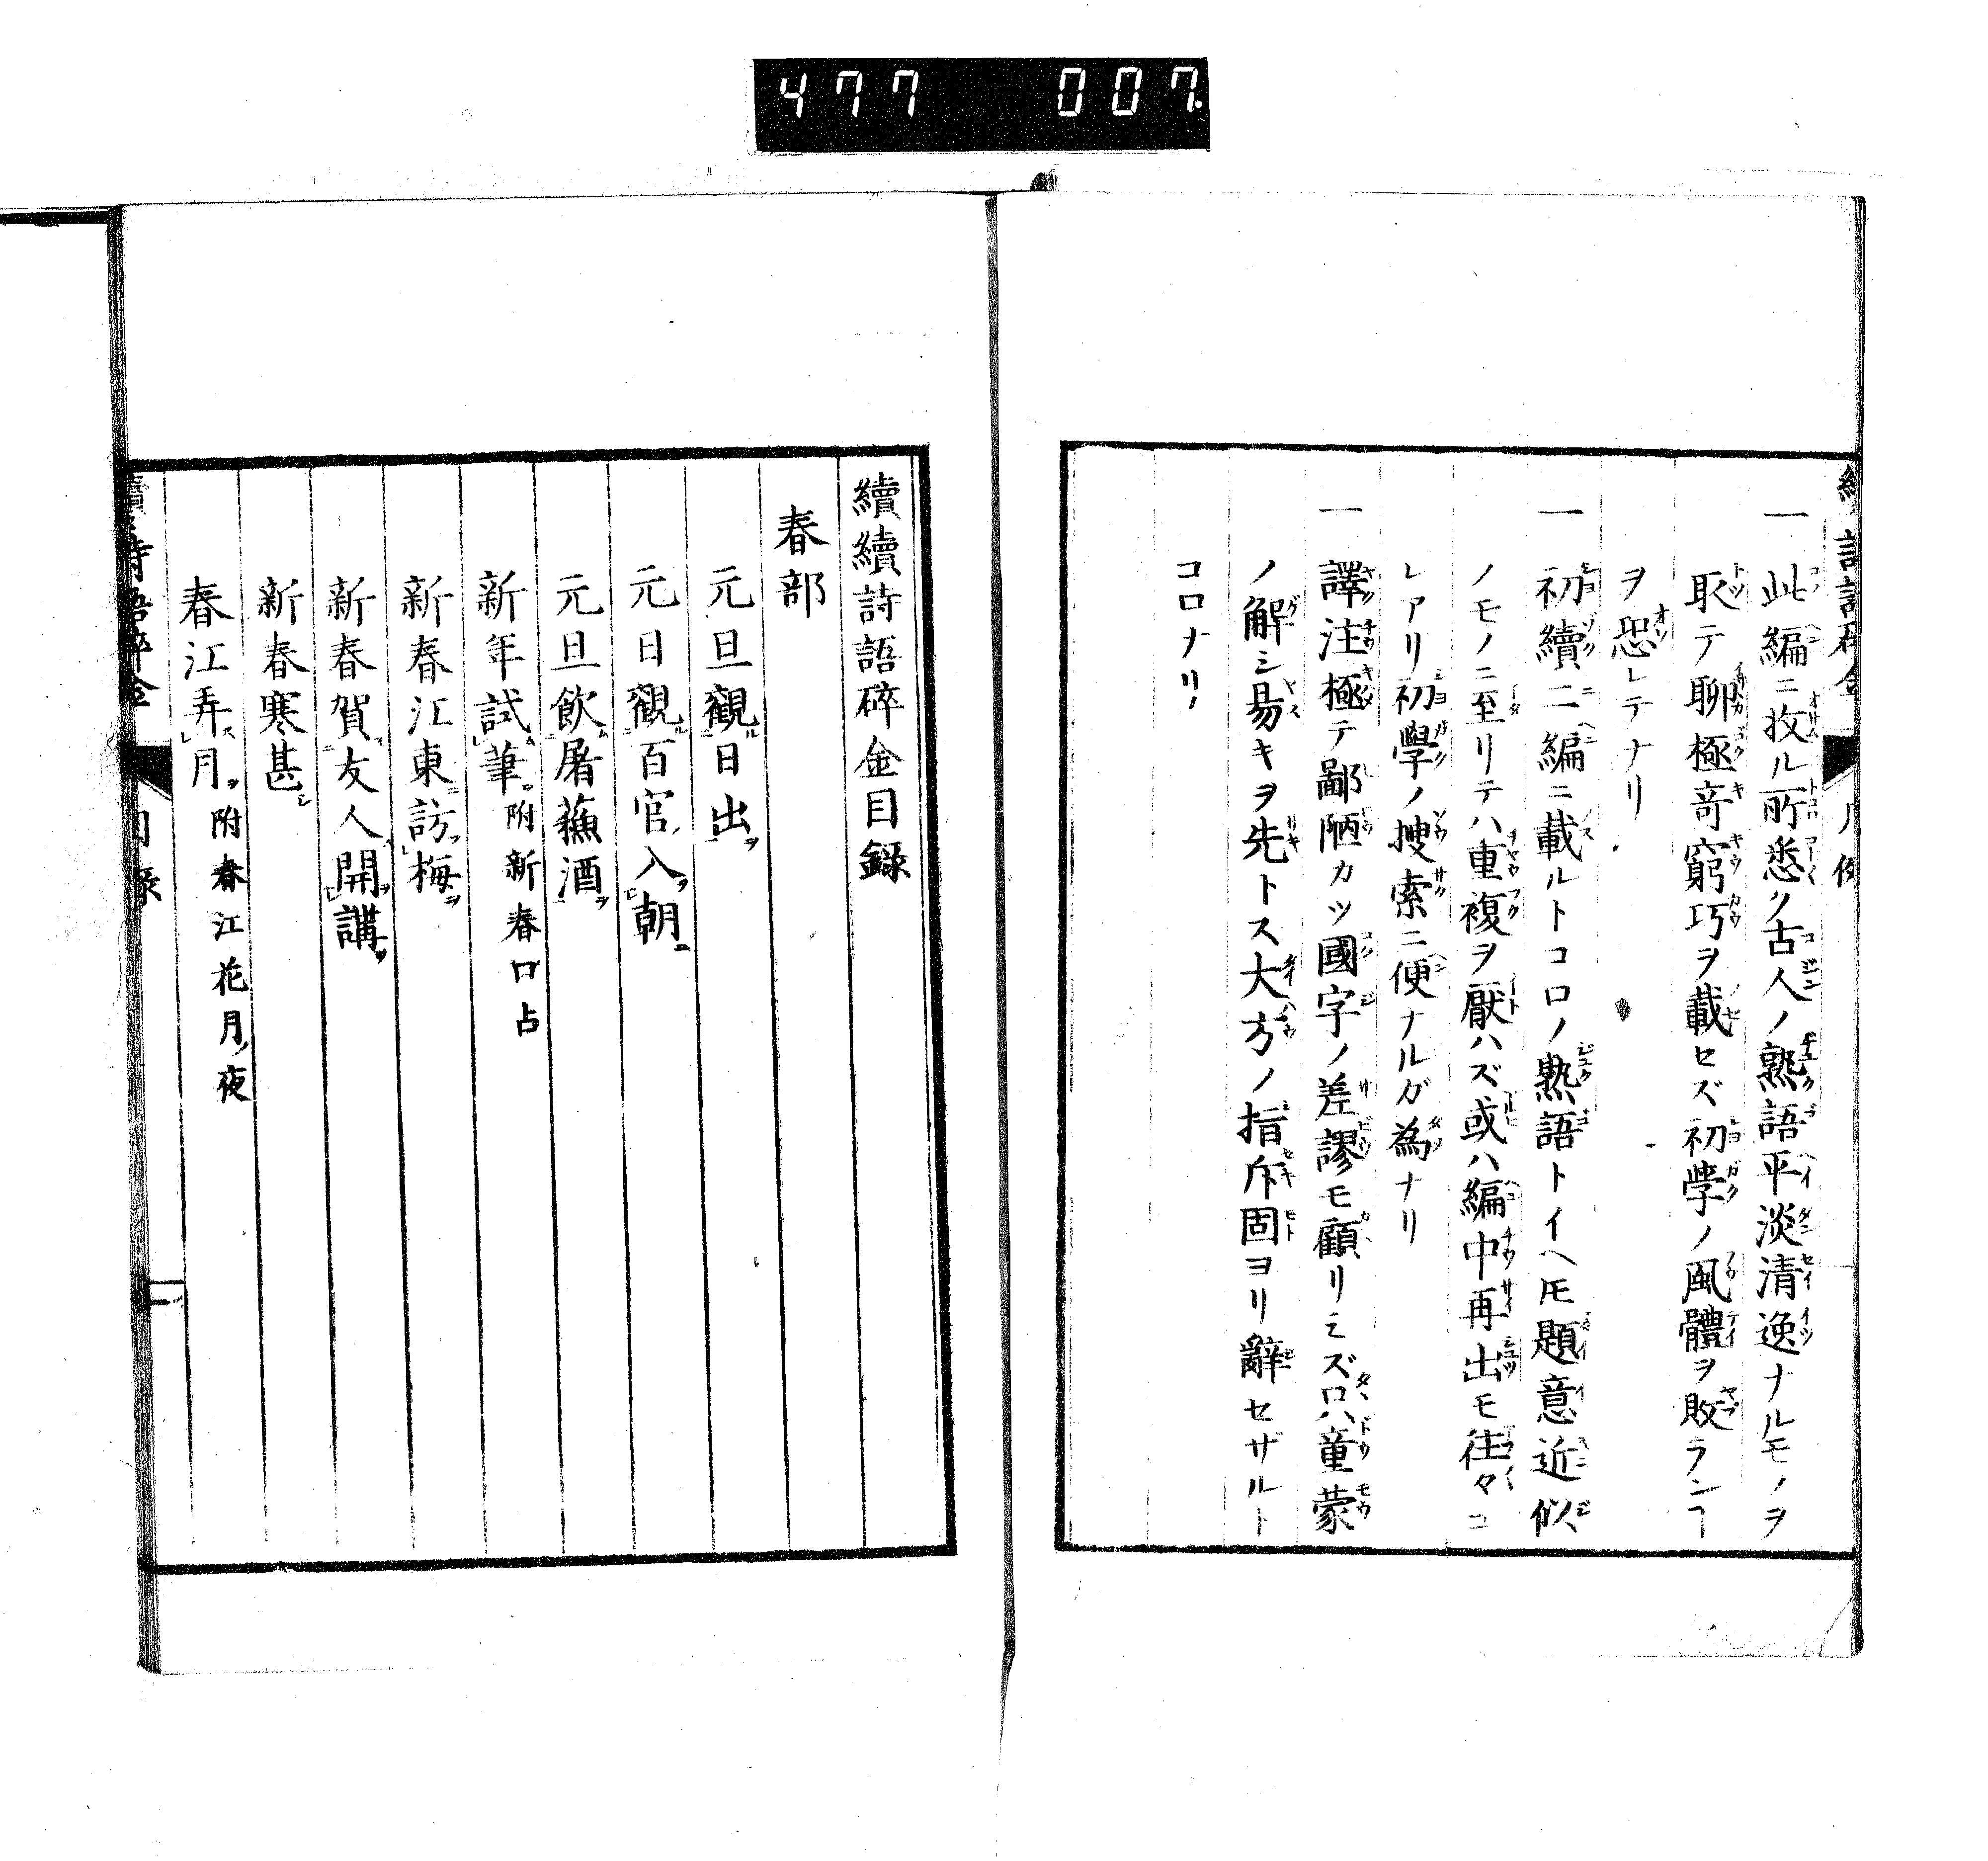 477 007.
一此編ニ收ル所悉ク古人ノ熟語平淡清逸ナルモノヲ
取テ聊極奇窮巧ヲ載セズ初學ノ風體ヲ敗ランヿ
ヲ恐レテナリ
一初續二編ニ載ルトコロノ熟語トイヘ𪜈題意近似
ノモノニ至リテハ重複ヲ厭ハズ或ハ編中再出モ往々コ
レアリ初學ノ搜索ニ便ナルガ為ナリ
一譯注極テ鄙陋カツ國字ノ差謬モ顧リミズ只童蒙
ノ解シ易キヲ先トス大方ノ指斥固ヨリ辭セザルト
コロナリ
續續詩語碎金目録
春部
元旦觀日出
元日觀百官入朝
元旦飲屠蘓酒
新年試筆 附新春口占
新春江東訪梅
新春賀友人開講
新春寒甚
春江弄月 附春江花月夜